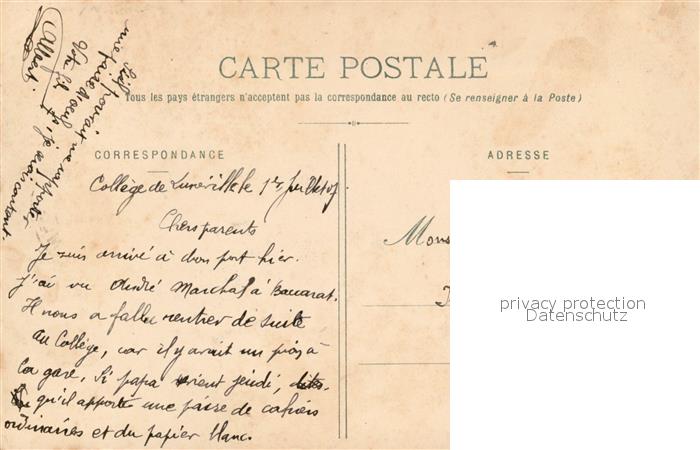 CARTE POSTALE
Tous les pays étrangers n'acceptent pas la correspondance au recto (Se renseigner à la Poste)
CORRESPONDANCE
ADRESSE
Collège de Lunéville le 1er
Chers parents
Je suis arrivé à bon port hier.
J'ai vu André Marchal à Baccarat.
Il nous a fallu rentrer de suite
au Collège, car il y avait un pion à
la gare. Si papa vient jeudi,
qu'il apporte une paire de cahiers
ordinaires et du papier blanc.
S'il pouvait me rapporter
une paire d'oeufs je serai content.
Votre fils
Albert
Mons
privacy protection
Datenschutz